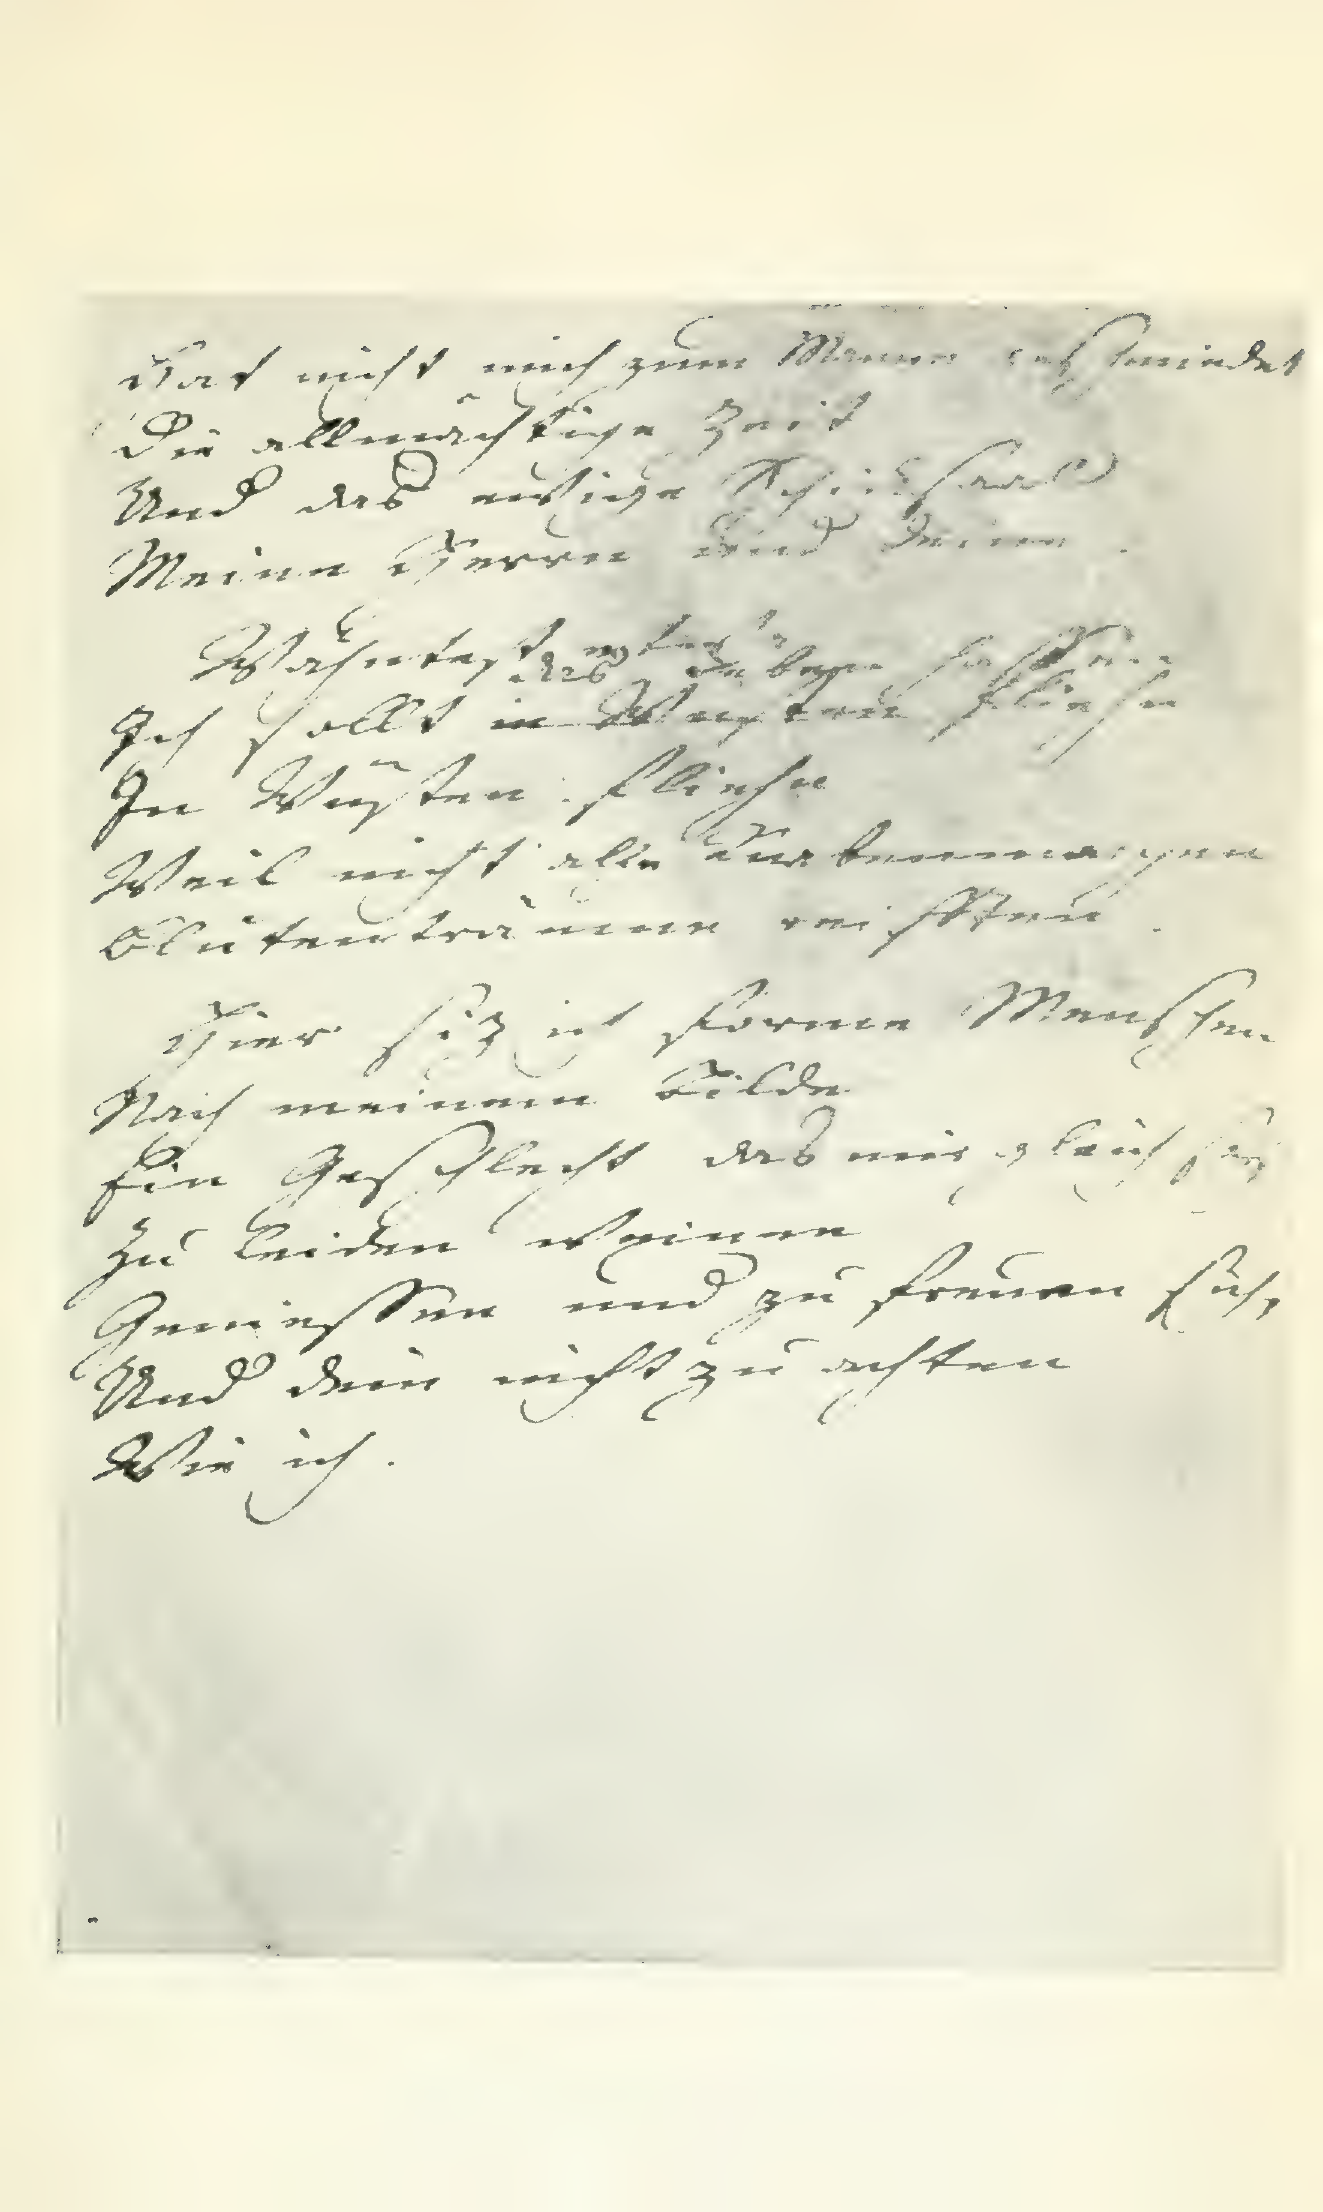 Hat nicht mich zum Manne geschmiedet
Die allmächtige Zeit
Und das ewige Schicksaal
Meine Herrn und Deine.
Wähntest etwa
das Leben hassen
Ich sollt in Wüsten fliehn
In Wüsten fliehn
Weil nicht alle Knabenmorgen
Blütenträume reifften.
Hier siz ich forme Menschen
Nach meinem Bilde
Ein Geschlecht das mir gleich sey
Zu leiden weinen
Geniessen und zu freuen sich,
Und dein nicht zu achten
Wie ich.